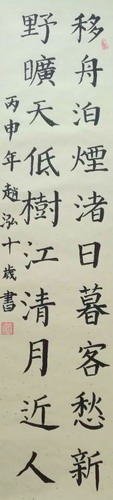 移舟泊煙渚日暮客愁新
野曠天低樹江清月近人
丙申年趙泓十歲書